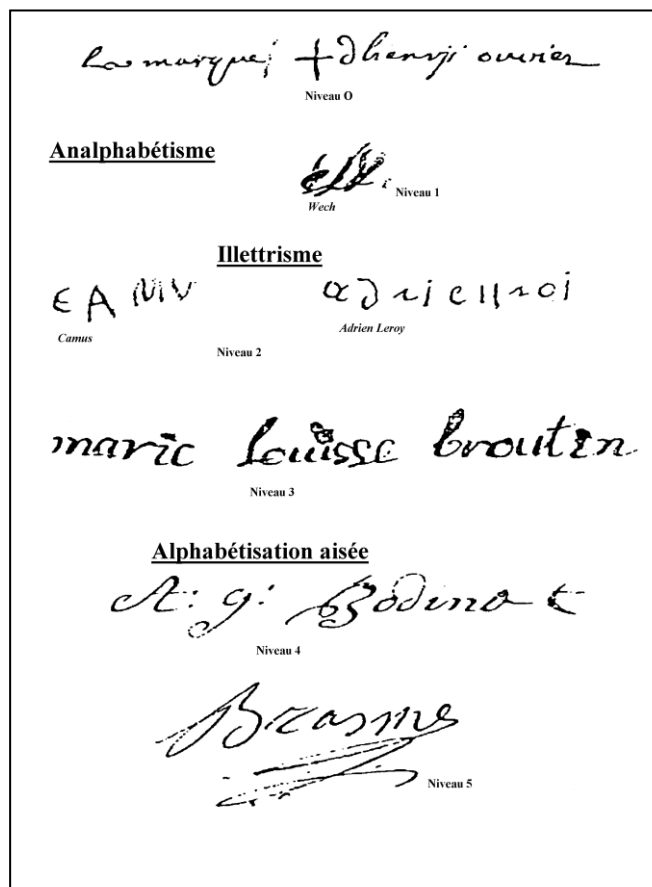 la marque + dhenrji ouvrier
Niveau O
Analphabétisme
Niveau 1
Wech
Illettrisme
EAMV adriellroi
Camus Adrien Leroy
Niveau 2
marie louisse broutin
Niveau 3
Alphabétisation aisée
A: g: Bodinot
Niveau 4
Brasme
Niveau 5